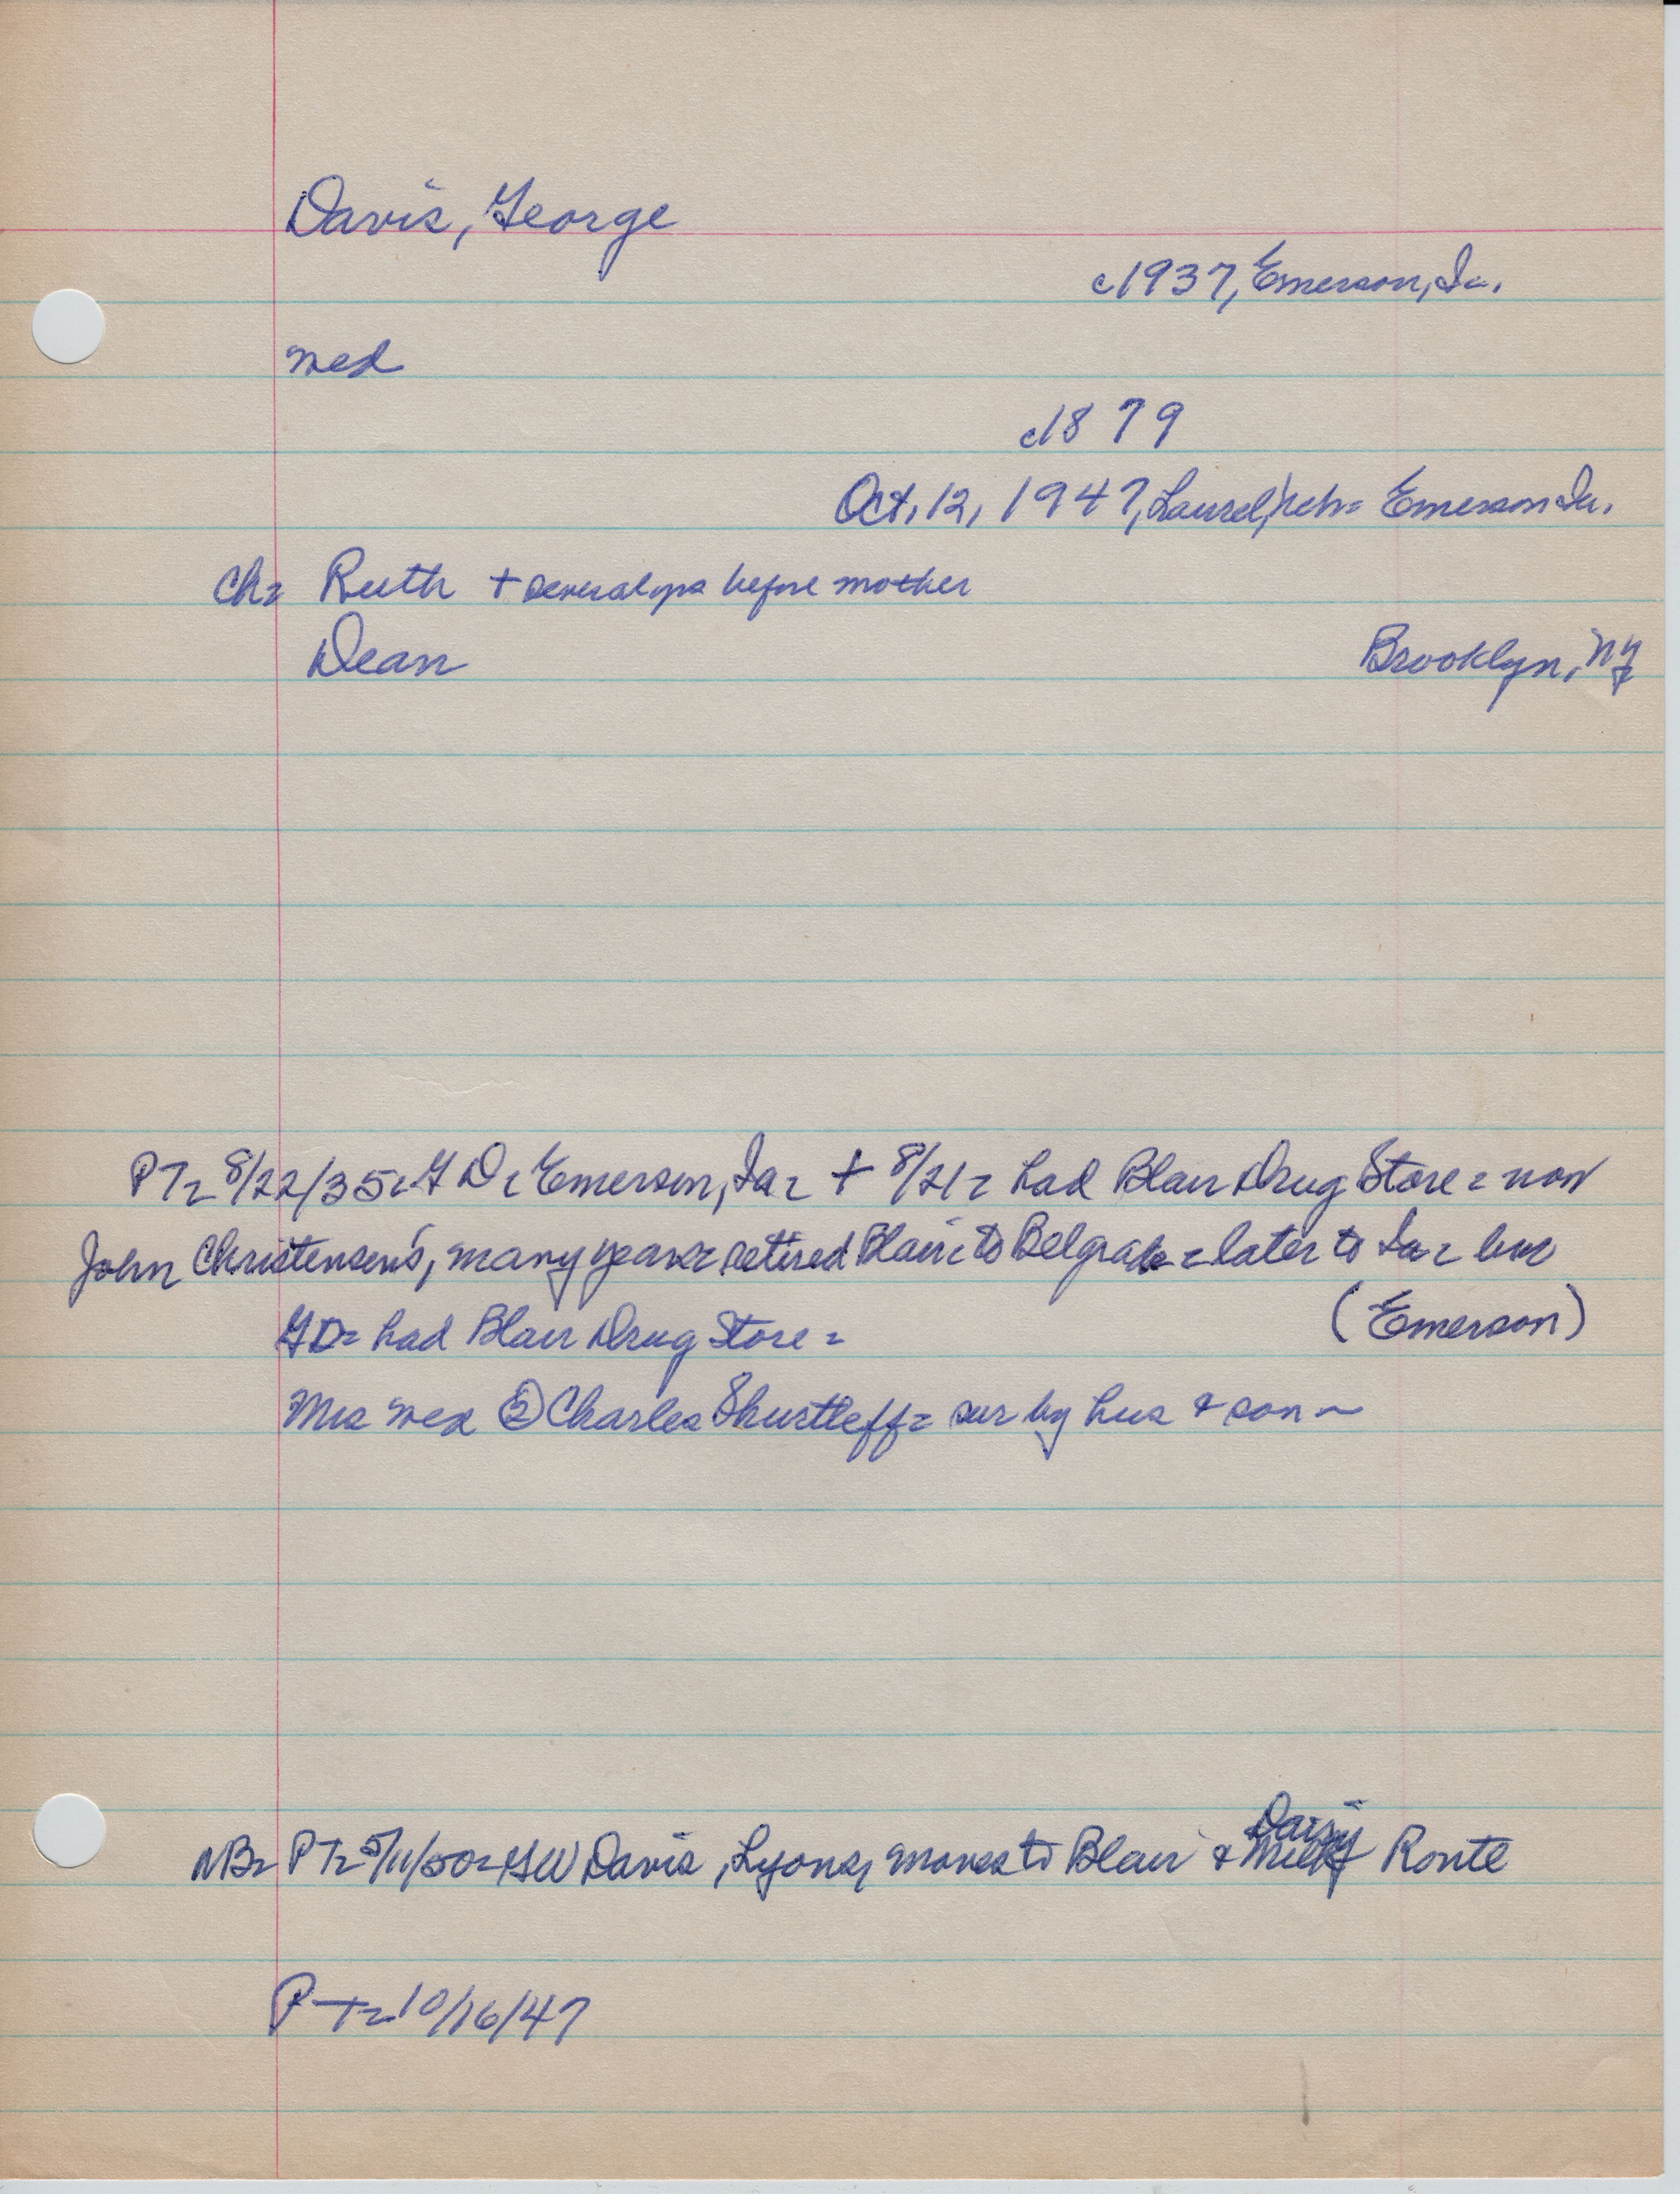 Davis, George
c1937, Emerson, Ia.
wed
c1879
Oct, 12, 1947, Laurel, Neb= Emerson Ia.
Ch= Ruth + several yrs before mother
Dean Brooklyn, NY
PT= 8/22/35= G D= Emerson, Ia= + 8/21= had Blair Drug Store= now
John Christensen's, many years= retired Blair= to Belgrade= later to Ia=
(Emerson)
GD= had Blair Drug Store=
Mrs wed ② Charles Shurtleff= sur by hus & son=
NB= PT= 5/11/50= GW Davis, Lyons, moves to Blair & Dairy Milk Route
PT= 10/16/47